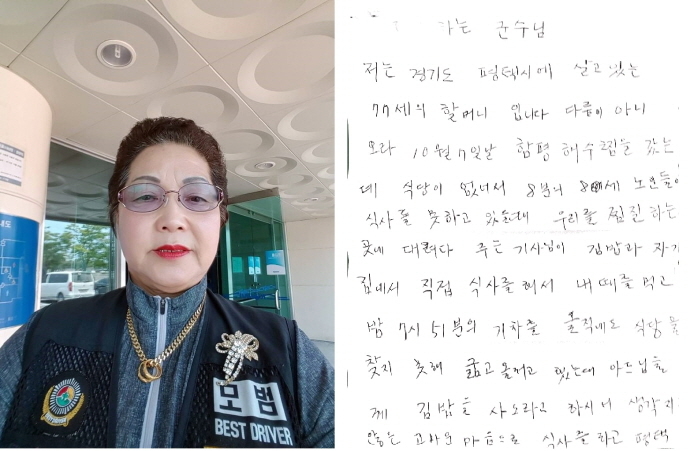 모범
BEST DRIVER
하는 군수님
저는 경기도 평텍시에 살고 있는
77세의 할머니 입니다 다름이 아니
오라 10월 7일날 함평 해수찜을 갔는
데 식당이 없너서 8분니 80세 노인들이
식사를 못하고 있는데 우리를 찜질하는
곳에 대려다 주는 기사님이 김밥과 자기
집에서 직접 식사를 해서 내때를 먹고
밤 7시 51분의 기차를 올적에도 식당을
찾지 못해 굶고 올려고 했는데 아드님을
께 김밥을 사오라고 하시너 생각지
않은 고마운 마음으로 식사를 하고 평택